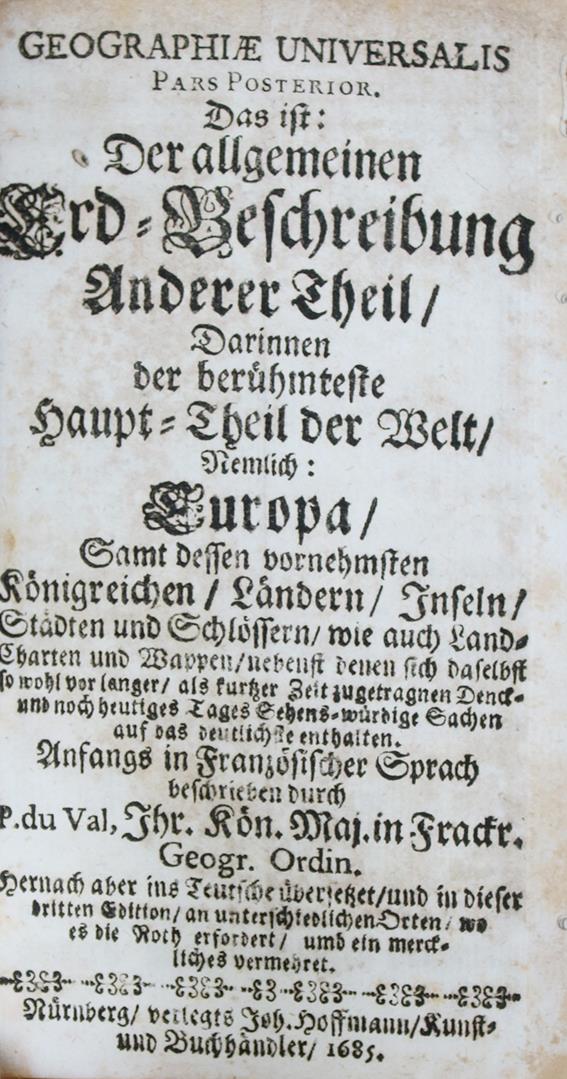 GEOGRAPHIÆ UNIVERSALIS
PARS POSTERIOR.
Das ist:
Der allgemeinen
Erd-Beschreibung
Anderer Theil/
Darinnen
der berühmteste
Haupt-Theil der Welt/
Nemlich:
Europa/
Samt dessen vornehmsten
Königreichen/ Ländern/ Inseln/
Städten und Schlössern/ wie auch Land-
Charten und Wappen/ nebenst denen sich daselbst
so wohl vor langer/ als kurtzer Zeit zugetragnen Denck-
und noch heutiges Tages Sehens-würdige Sachen
auf das deutlichste enthalten.
Anfangs in Französischer Sprach
beschrieben durch
P. du Val, Ihr. Kön. Maj. in Frackr.
Geogr. Ordin.
Hernach aber ins Teutsche übersetzet/ und in dieser
dritten Edition/ an unterschiedlichen Orten/ wo
es die Noth erfordert/ umb ein merck-
liches vermehret.
Nürnberg/ verlegts Joh. Hoffmann/ Kunst-
und Buchhändler/ 1685.